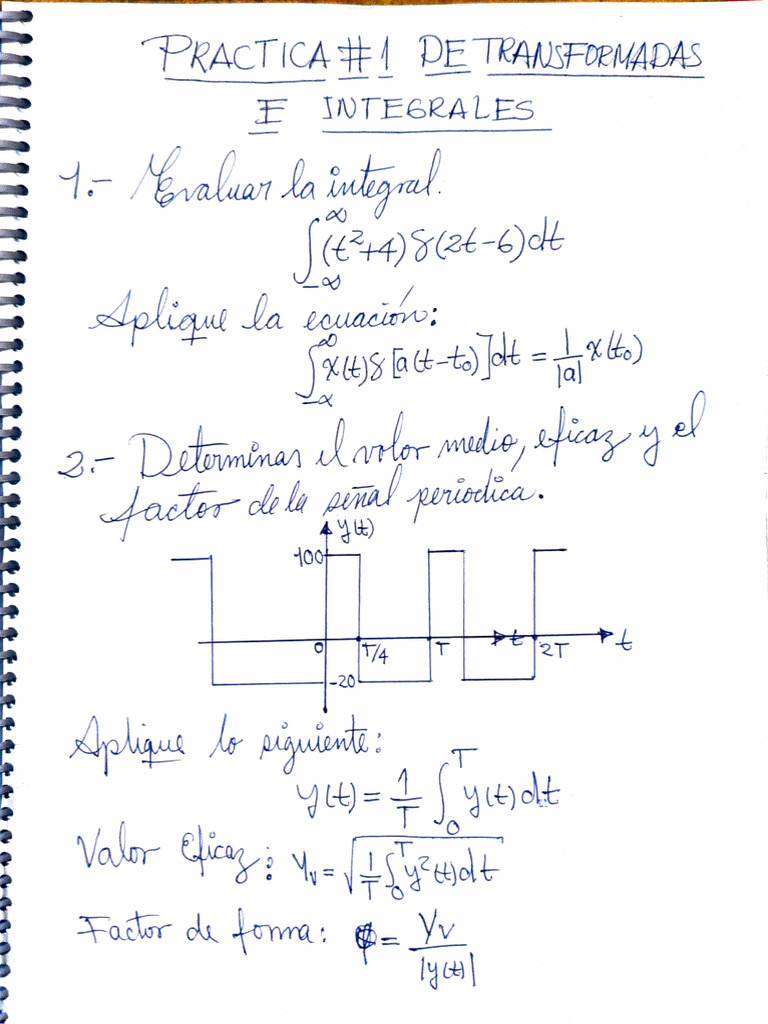 PRACTICA #1 DE TRANSFORMADAS
E INTEGRALES
1.- Evaluar la integral.
∫_{-∞}^{∞} (t²+4) δ(2t-6) dt
Aplique la ecuación:
∫_{-∞}^{∞} x(t) δ[a(t-t₀)] dt = 1/|a| x(t₀)
2.- Determinas el valor medio, eficaz y el
factor de la señal periodica.
y(t)
100
0 T/4 T t 2T t
-20
Aplique lo siguiente:
y(t) = 1/T ∫₀ᵀ y(t) dt
Valor Eficaz: Yᵥ = √(1/T ∫₀ᵀ y²(t) dt)
Factor de forma: φ = Yᵥ/|y(t)|